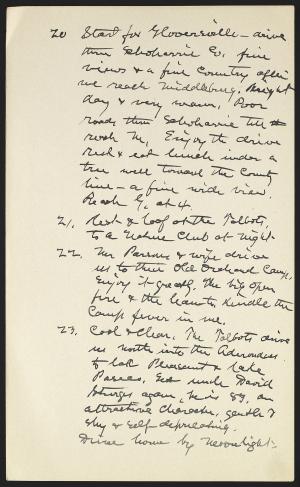 20 Start for Gloversville — drive
thru Schoharie Co. fine
views & a fine country after
we reach Middleburg. Bright
day & very warm. Poor
roads thru Schoharie till
we reach N. Enjoy the drive
Rest & eat lunch under a
tree well toward the County
line — a fine wide view.
Reach G. at 4.
21. Rest & loaf at the Talbots,
to a Nature Club at night.
22. Mr Parsons & wife drive
us to their Old Orchard Camp,
Enjoy it greatly. The big open
fire & the hearth kindle the
Camp fever in me.
23. Cool & clear. The Talbots drive
us north into the Adirondacs
to Lake Pleasant & Lake
Piseco. See uncle David
Sturges again, he is 83, an
attractive character, gentle &
shy & self depreciating.
Drive home by moonlight.